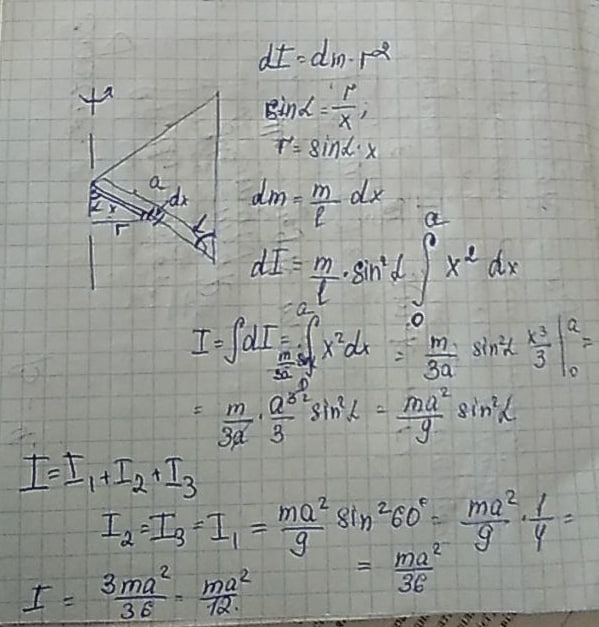 dI = dm · r²
sin α = r/x ;
r = sin α · x
a
dx
α x
r
α
dm = m/l dx
dI = m/l · sin² α ∫₀ᵃ x² dx
I = ∫ dI = m/3a ∫₀ᵃ x² dx = m/3a · sin² α x³/3 |₀ᵃ =
= m/3a · a³/3 sin² α = ma²/9 sin² α
I = I₁ + I₂ + I₃
I₂ = I₃ = I₁ = ma²/9 sin² 60° = ma²/9 · 1/4 =
= ma²/36
I = 3ma²/36 = ma²/12.